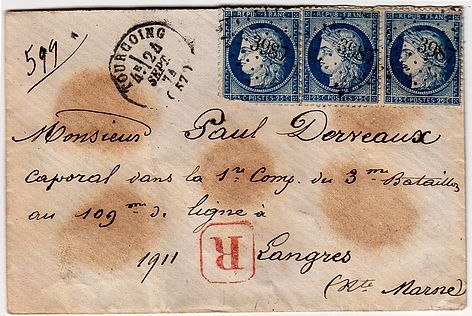 599
TOURCOING
24
SEPT
74
(57)
REPUB · FRANC REPUB · FRANC REPUB · FRANC
3987 3987 3987
25 C POSTES 25 C 25 C POSTES 25 C 25 C POSTES 25 C
Monsieur Paul Derveaux
caporal dans la 1re Comp. du 3me Bataillon
au 109me de ligne à
1911 R Langres
(Hte Marne)